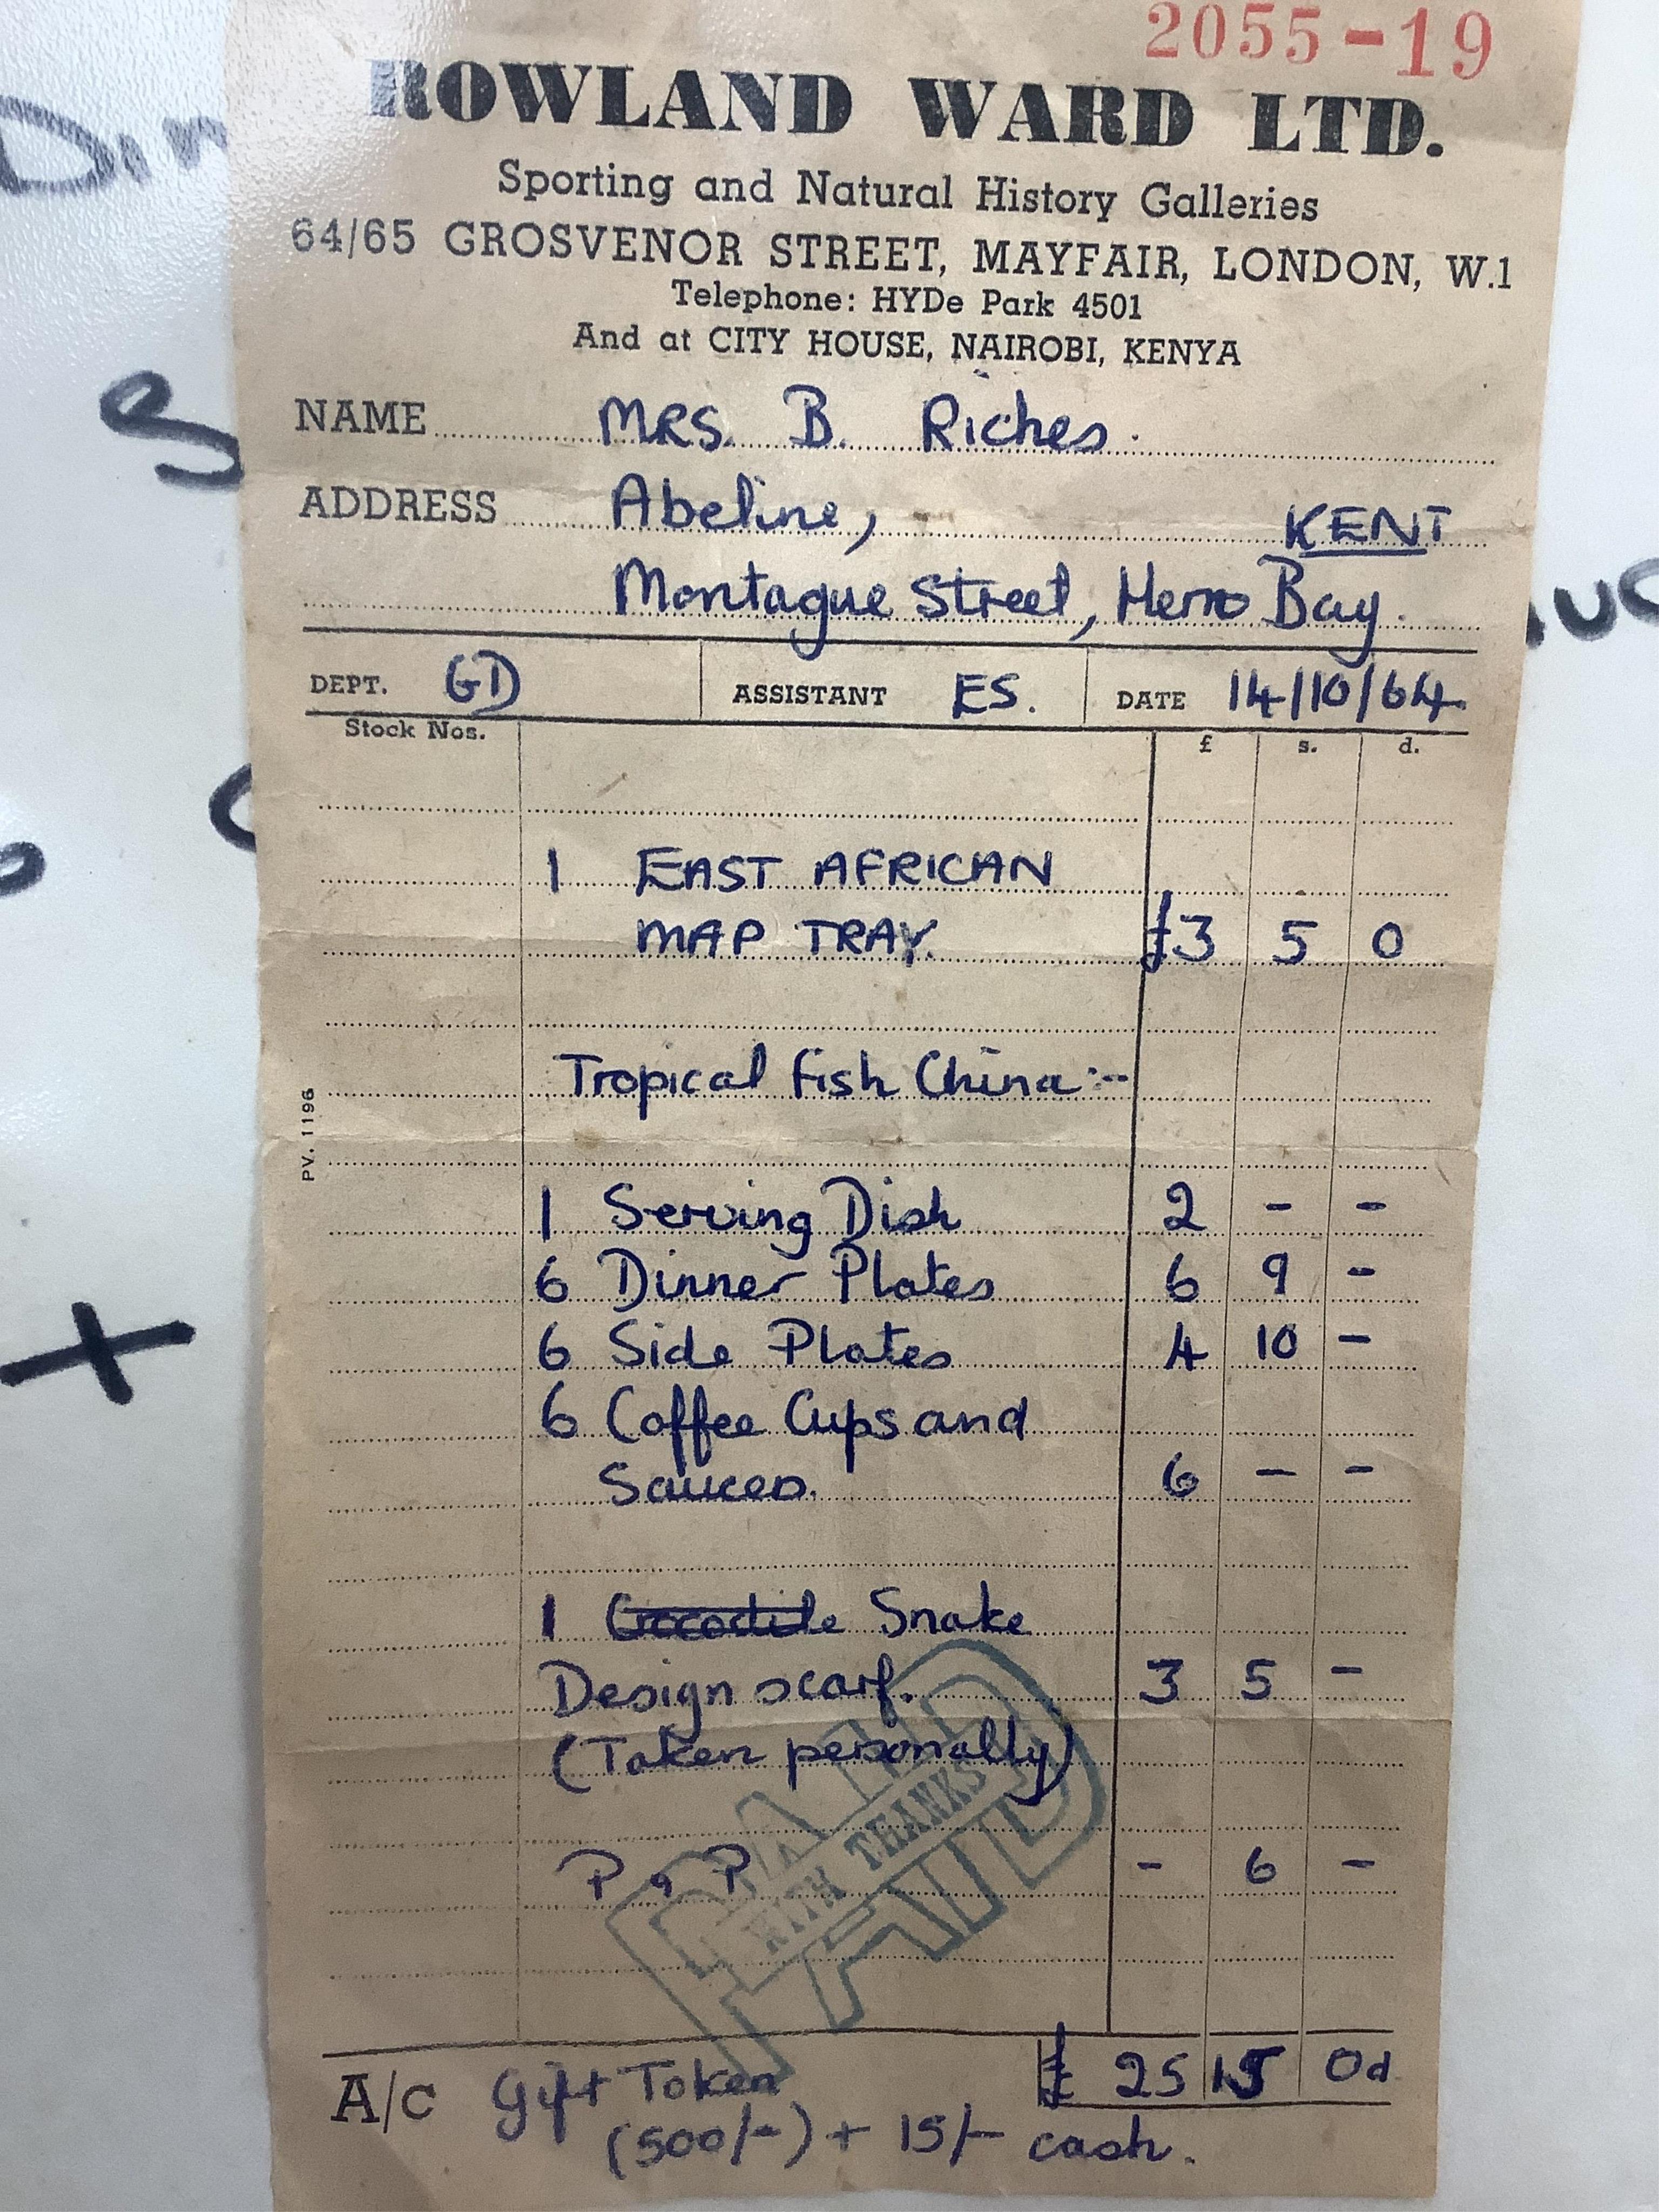 2055-19
ROWLAND WARD LTD.
Sporting and Natural History Galleries
64/65 GROSVENOR STREET, MAYFAIR, LONDON, W.1
Telephone: HYDe Park 4501
And at CITY HOUSE, NAIROBI, KENYA
NAME MRS. B. Riches.
ADDRESS Abeline, KENT
Montague Street, Herne Bay.
DEPT. GD ASSISTANT ES. DATE 14/10/64.
Stock Nos. £ s. d.
1 EAST AFRICAN
MAP TRAY. £3 5 0
Tropical Fish China:-
PV. 1196
1 Serving Dish 2 - -
6 Dinner Plates 6 9 -
6 Side Plates 4 10 -
6 Coffee Cups and
Saucers. 6 - -
1 Crocodile Snake
Design scarf. 3 5 -
(Taken personally)
P & P - 6 -
PAID
WITH THANKS
PAID
A/C Gift Token £ 25 15 0d
(500/-) + 15/- cash.